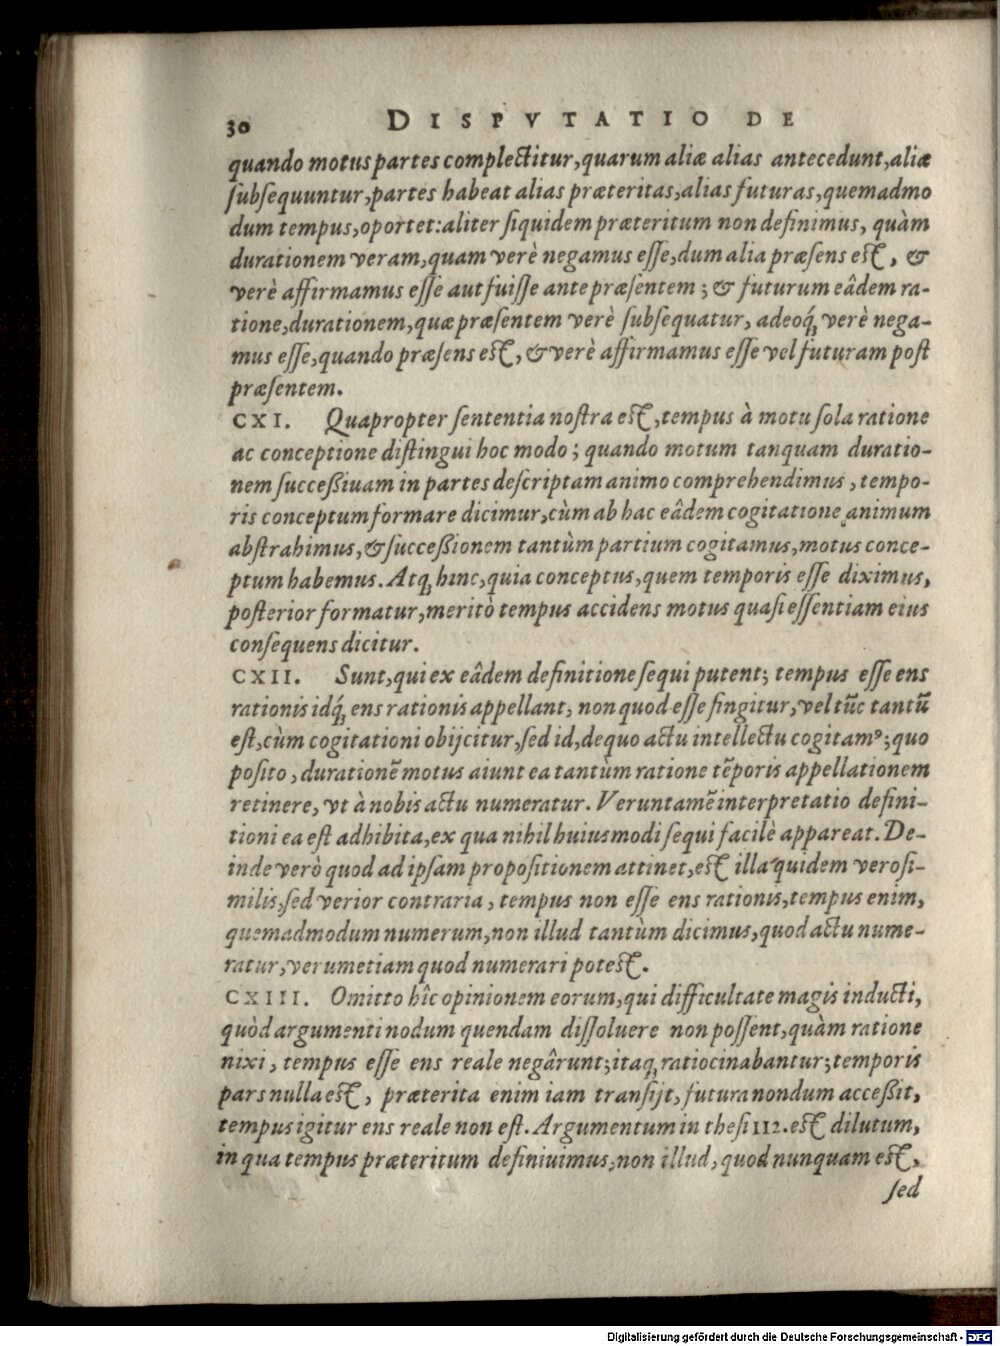 30 DISPVTATIO DE
quando motus partes complectitur, quarum aliæ alias antecedunt, aliæ
ſubſequuntur, partes habeat alias præteritas, alias futuras, quemadmo
dum tempus, oportet: aliter ſiquidem præteritum non definimus, quàm
durationem veram, quam verè negamus eſſe, dum alia præſens eſt, &
verè affirmamus eſſe aut fuiſſe ante præſentem; & futurum eâdem ra-
tione, durationem, quæ præſentem verè ſubſequatur, adeoq́; verè nega-
mus eſſe, quando præſens eſt, & verè affirmamus eſſe vel futuram poſt
præſentem.
CXI. Quapropter ſententia noſtra eſt, tempus à motu ſola ratione
ac conceptione diſtingui hoc modo; quando motum tanquam duratio-
nem ſucceßiuam in partes deſcriptam animo comprehendimus, tempo-
ris conceptum formare dicimur, cùm ab hac eâdem cogitatione animum
abſtrahimus, & ſucceßionem tantùm partium cogitamus, motus conce-
ptum habemus. Atq; hinc, quia conceptus, quem temporis eſſe diximus,
poſterior formatur, meritò tempus accidens motus quaſi eſſentiam eius
conſequens dicitur.
CXII. Sunt, qui ex eâdem definitione ſequi putent; tempus eſſe ens
rationis idq́; ens rationis appellant, non quod eſſe fingitur, vel tũc tantũ
eſt, cùm cogitationi obijcitur, ſed id, de quo actu intellectu cogitamꝰ; quo
poſito, durationẽ motus aiunt ea tantùm ratione tẽporis appellationem
retinere, vt à nobis actu numeratur. Veruntamẽ interpretatio defini-
tioni ea eſt adhibita, ex qua nihil huiusmodi ſequi facilè appareat. De-
inde verò quod ad ipſam propoſitionem attinet, eſt illa quidem veroſi-
milis, ſed verior contraria, tempus non eſſe ens rationis, tempus enim,
quemadmodum numerum, non illud tantùm dicimus, quod actu nume-
ratur, verumetiam quod numerari poteſt.
CXIII. Omitto hîc opinionem eorum, qui difficultate magis inducti,
quòd argumenti nodum quendam diſſoluere non poſſent, quàm ratione
nixi, tempus eſſe ens reale negârunt; itaq; ratiocinabantur; temporis
pars nulla eſt, præterita enim iam tranſijt, futura nondum acceßit,
tempus igitur ens reale non eſt. Argumentum in theſi 112. eſt dilutum,
in qua tempus præteritum definiuimus, non illud, quod nunquam eſt,
ſed
Digitalisierung gefördert durch die Deutsche Forschungsgemeinschaft - DFG